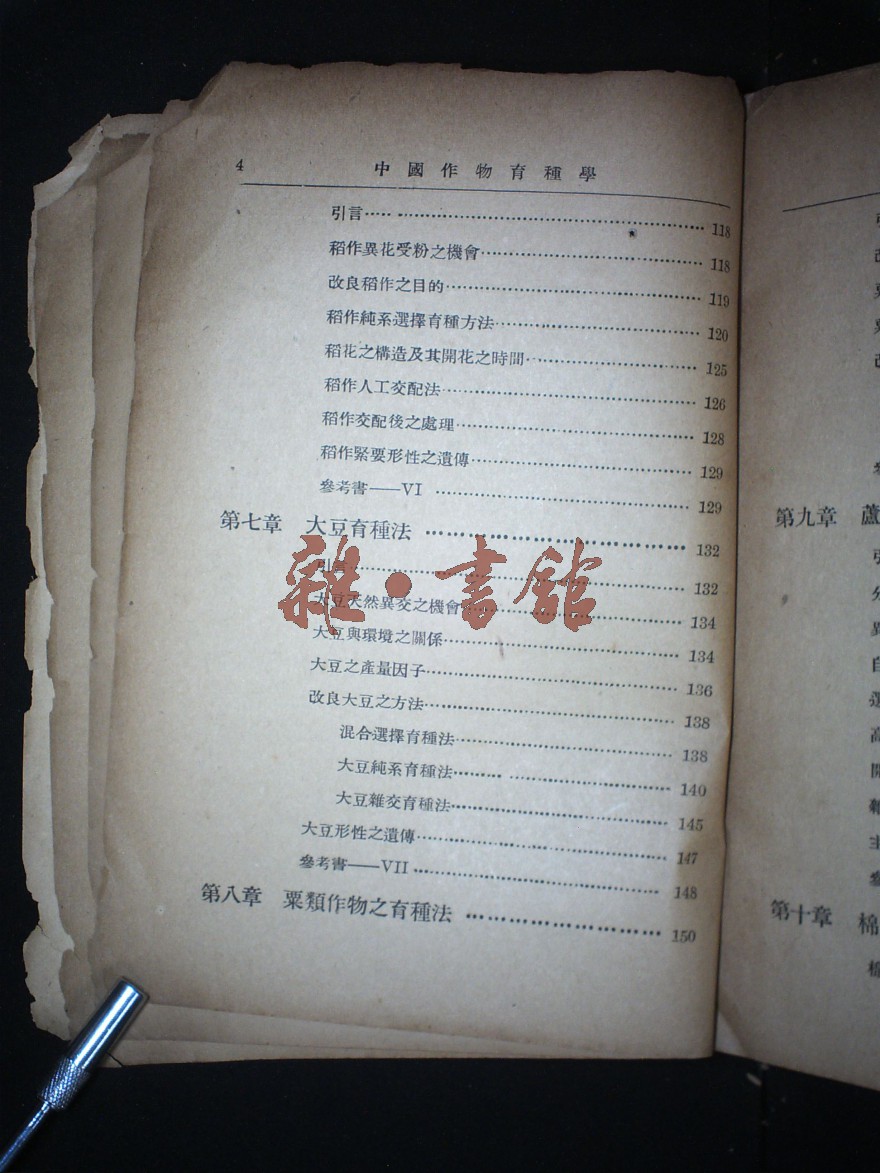 4 中國作物育種學
引言…………………………………118
稻作異花受粉之機會…………………………118
改良稻作之目的……………………………119
稻作純系選擇育種方法………………………120
稻花之構造及其開花之時間……………………125
稻作人工交配法……………………………126
稻作交配後之處理…………………………128
稻作緊要形性之遺傳………………………129
參考書——VI……………………………129
第七章 大豆育種法……………………………132
引言…………………………………132
大豆天然異交之機會…………………………134
大豆與環境之關係…………………………134
大豆之產量因子……………………………136
改良大豆之方法……………………………138
混合選擇育種法……………………………138
大豆純系育種法……………………………140
大豆雜交育種法……………………………145
大豆形性之遺傳……………………………147
參考書——VII……………………………148
第八章 粟類作物之育種法………………………150
雜·書館
第九章
第十章 棉